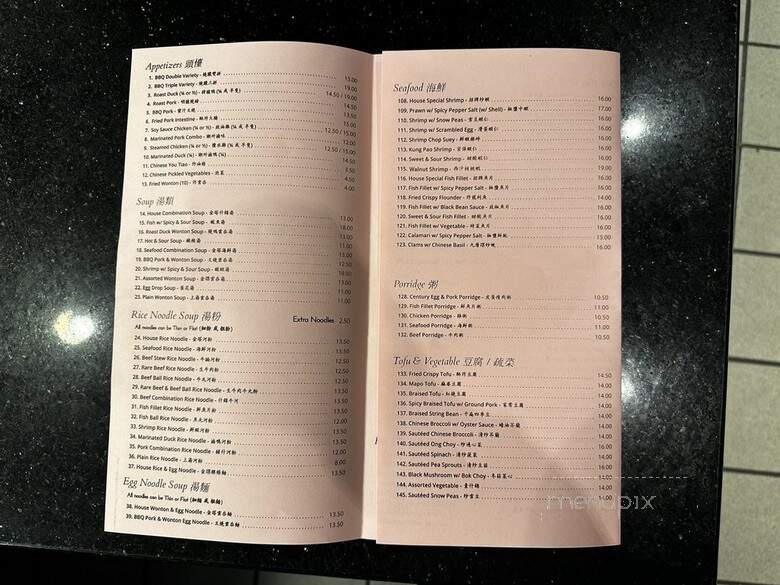 Appetizers 頭檯
1. BBQ Double Variety - 燒臘雙拼 15.00
2. BBQ Triple Variety - 燒臘三拼 19.00
3. Roast Duck (¼ or ½) - 14.50 / 19.00
4. Roast Pork - 16.00
5. BBQ Pork - 蜜汁叉燒
6. Fried Pork Intestine -
7. Soy Sauce Chicken (¼ or ½) - 12.50 / 15.00
8. Marinated Pork Combo -
9. Steamed Chicken (¼ or ½) - 12.50 / 15.00
10. Marinated Duck (¼) -
11. Chinese You Tiao - 炸油條
12. Chinese Pickled Vegetables - 泡菜
13. Fried Wonton (10) - 炸雲吞 4.00
Soup 湯類
14. House Combination Soup - 13.00
15. Fish w/ Spicy & Sour Soup -
16. Roast Duck Wonton Soup -
17. Hot & Sour Soup - 酸辣湯
18. Seafood Combination Soup -
19. BBQ Pork & Wonton Soup - 叉燒雲吞湯
20. Shrimp w/ Spicy & Sour Soup -
21. Assorted Wonton Soup -
22. Egg Drop Soup - 蛋花湯 11.00
23. Plain Wonton Soup - 上湯雲吞 11.00
Rice Noodle Soup 湯粉 Extra Noodles 2.50
All noodles can be Thin or Flat (細粉 或 粗粉)
24. House Rice Noodle - 金塔河粉 13.50
25. Seafood Rice Noodle - 海鮮河粉 13.50
26. Beef Stew Rice Noodle - 牛腩河粉 12.50
27. Rare Beef Rice Noodle - 生牛肉粉 12.50
28. Beef Ball Rice Noodle - 牛丸河粉 12.50
29. Rare Beef & Beef Ball Rice Noodle - 生牛肉牛丸粉 13.50
30. Beef Combination Rice Noodle - 什錦牛河 13.50
31. Fish Fillet Rice Noodle - 鮮魚片粉 13.50
32. Fish Ball Rice Noodle - 魚丸河粉 12.50
33. Shrimp Rice Noodle - 鮮蝦河粉 13.50
34. Marinated Duck Rice Noodle - 滷鴨河粉 13.50
35. Pork Combination Rice Noodle - 豬什河粉 12.50
36. Plain Rice Noodle - 上湯河粉 8.00
37. House Rice & Egg Noodle - 13.50
Egg Noodle Soup 湯麵
All noodles can be Thin or Flat (細麵 或 粗麵)
38. House Wonton & Egg Noodle - 金塔雲吞麵 13.50
39. BBQ Pork & Wonton Egg Noodle - 叉燒雲吞麵 13.50
Seafood 海鮮
108. House Special Shrimp - 招牌炒蝦 16.00
109. Prawn w/ Spicy Pepper Salt (w/ Shell) - 椒鹽中蝦 17.00
110. Shrimp w/ Snow Peas - 雪豆蝦仁 16.00
111. Shrimp w/ Scrambled Egg - 滑蛋蝦仁 16.00
112. Shrimp Chop Suey - 16.00
113. Kung Pao Shrimp - 宮保蝦仁 16.00
114. Sweet & Sour Shrimp - 甜酸蝦仁 16.00
115. Walnut Shrimp - 19.00
116. House Special Fish Fillet - 招牌魚片 16.00
117. Fish Fillet w/ Spicy Pepper Salt - 椒鹽魚片 16.00
118. Fried Crispy Flounder - 14.00
119. Fish Fillet w/ Black Bean Sauce - 豉椒魚片 16.00
120. Sweet & Sour Fish Fillet - 甜酸魚片 16.00
121. Fish Fillet w/ Vegetable - 時菜魚片 16.00
122. Calamari w/ Spicy Pepper Salt - 椒鹽鮮魷 15.00
123. Clams w/ Chinese Basil - 九層塔炒蜆 16.00
Porridge 粥
128. Century Egg & Pork Porridge - 皮蛋瘦肉粥 10.50
129. Fish Fillet Porridge - 鮮魚片粥 11.00
130. Chicken Porridge - 雞粥 10.50
131. Seafood Porridge - 海鮮粥 11.00
132. Beef Porridge - 牛肉粥 10.50
Tofu & Vegetable 豆腐 / 蔬菜
133. Fried Crispy Tofu - 酥炸豆腐 14.50
134. Mapo Tofu - 麻婆豆腐 14.00
135. Braised Tofu - 紅燒豆腐 14.00
136. Spicy Braised Tofu w/ Ground Pork - 家常豆腐 14.00
137. Braised String Bean - 干扁四季豆 14.00
138. Chinese Broccoli w/ Oyster Sauce - 蠔油芥蘭 14.00
139. Sautéed Chinese Broccoli - 清炒芥蘭 14.00
140. Sautéed Ong Choy - 炒通心菜 16.00
141. Sautéed Spinach - 清炒菠菜 14.00
142. Sautéed Pea Sprouts - 清炒豆苗 16.00
143. Black Mushroom w/ Bok Choy - 冬菇菜心 14.00
144. Assorted Vegetable - 素什錦 14.00
145. Sautéed Snow Peas - 炒雪豆 14.00
menupix